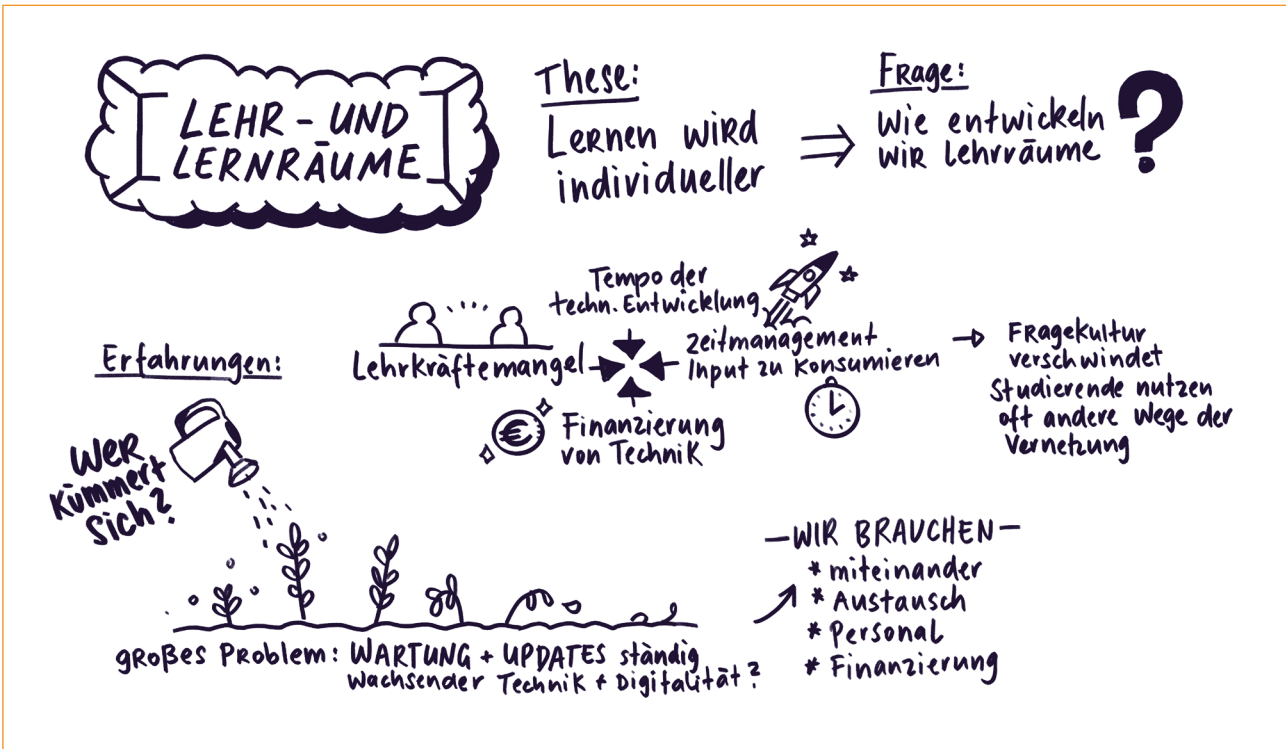 LEHR - UND
LERNRÄUME
These:
Lernen wird
individueller
Frage:
Wie entwickeln
wir Lehrräume
?
Erfahrungen:
Tempo der
techn. Entwicklung
Lehrkräftemangel
Zeitmanagement
Input zu Konsumieren
Finanzierung
von Technik
€
Fragekultur
verschwindet
Studierende nutzen
oft andere Wege der
Vernetzung
Wer
Kümmert
Sich?
großes Problem: WARTUNG + UPDATES ständig
wachsender Technik + Digitalität?
—WIR BRAUCHEN—
* miteinander
* Austausch
* Personal
* Finanzierung